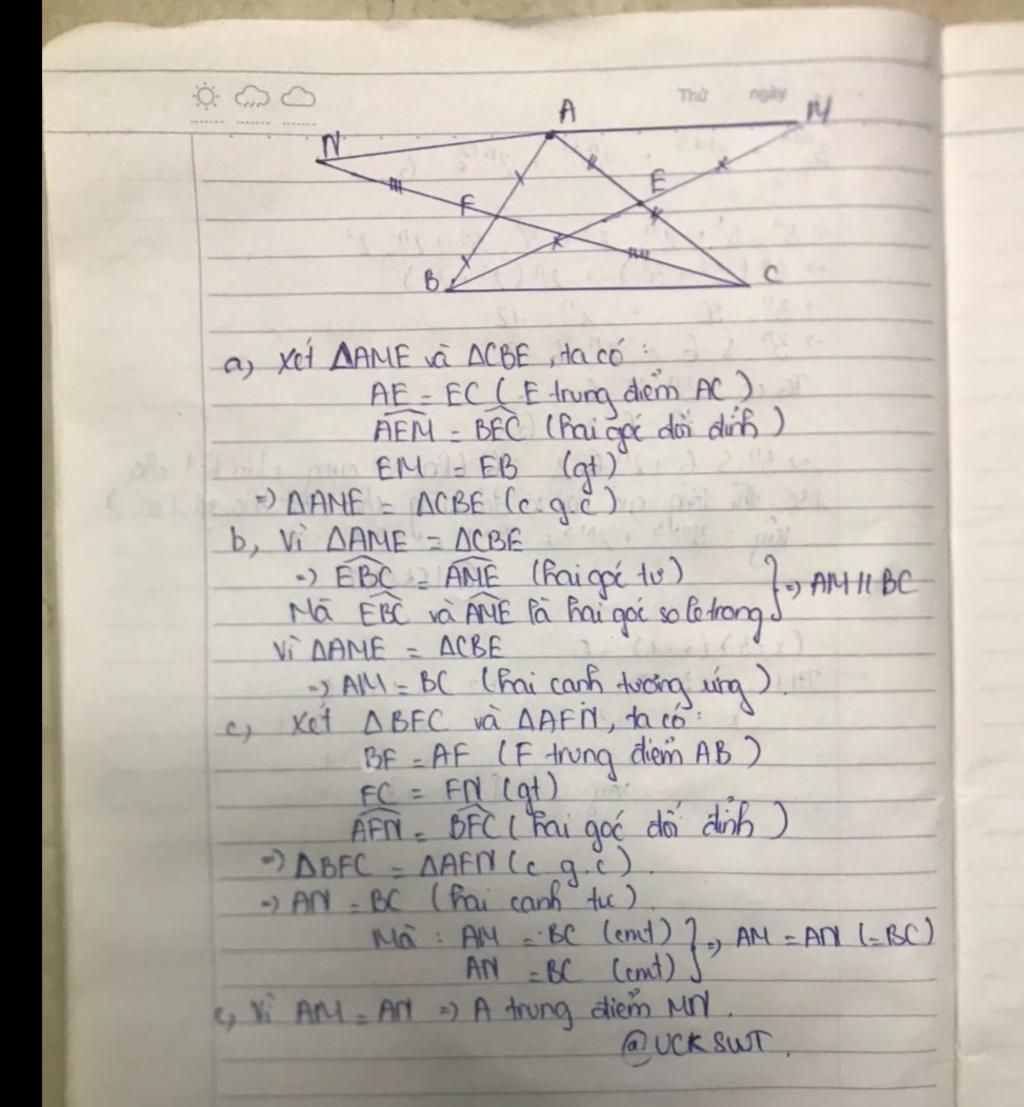 Thứ ngày
A
M
N
E
F
B
C
a, Xét ΔAME và ΔCBE, ta có:
AE = EC (E trung điểm AC)
AEM = BEC (hai góc đối đỉnh)
EM = EB (gt)
=> ΔAME = ΔCBE (c.g.c)
b, Vì ΔAME = ΔCBE
=> EBC = AME (hai góc tư)
Mà EBC và AME là hai góc so le trong } => AM // BC
Vì ΔAME = ΔCBE
=> AM = BC (hai canh tương ứng).
c, Xét ΔBFC và ΔAFN, ta có:
BF = AF (F trung điểm AB)
FC = FN (gt)
AFN = BFC (hai góc đối đỉnh)
=> ΔBFC = ΔAFN (c.g.c).
=> AN = BC (hai canh tư).
Mà : AM = BC (cmt) } => AM = AN (=BC)
AN = BC (cmt)
c, Vì AM = AN => A trung điểm MN.
@UCKSWT.